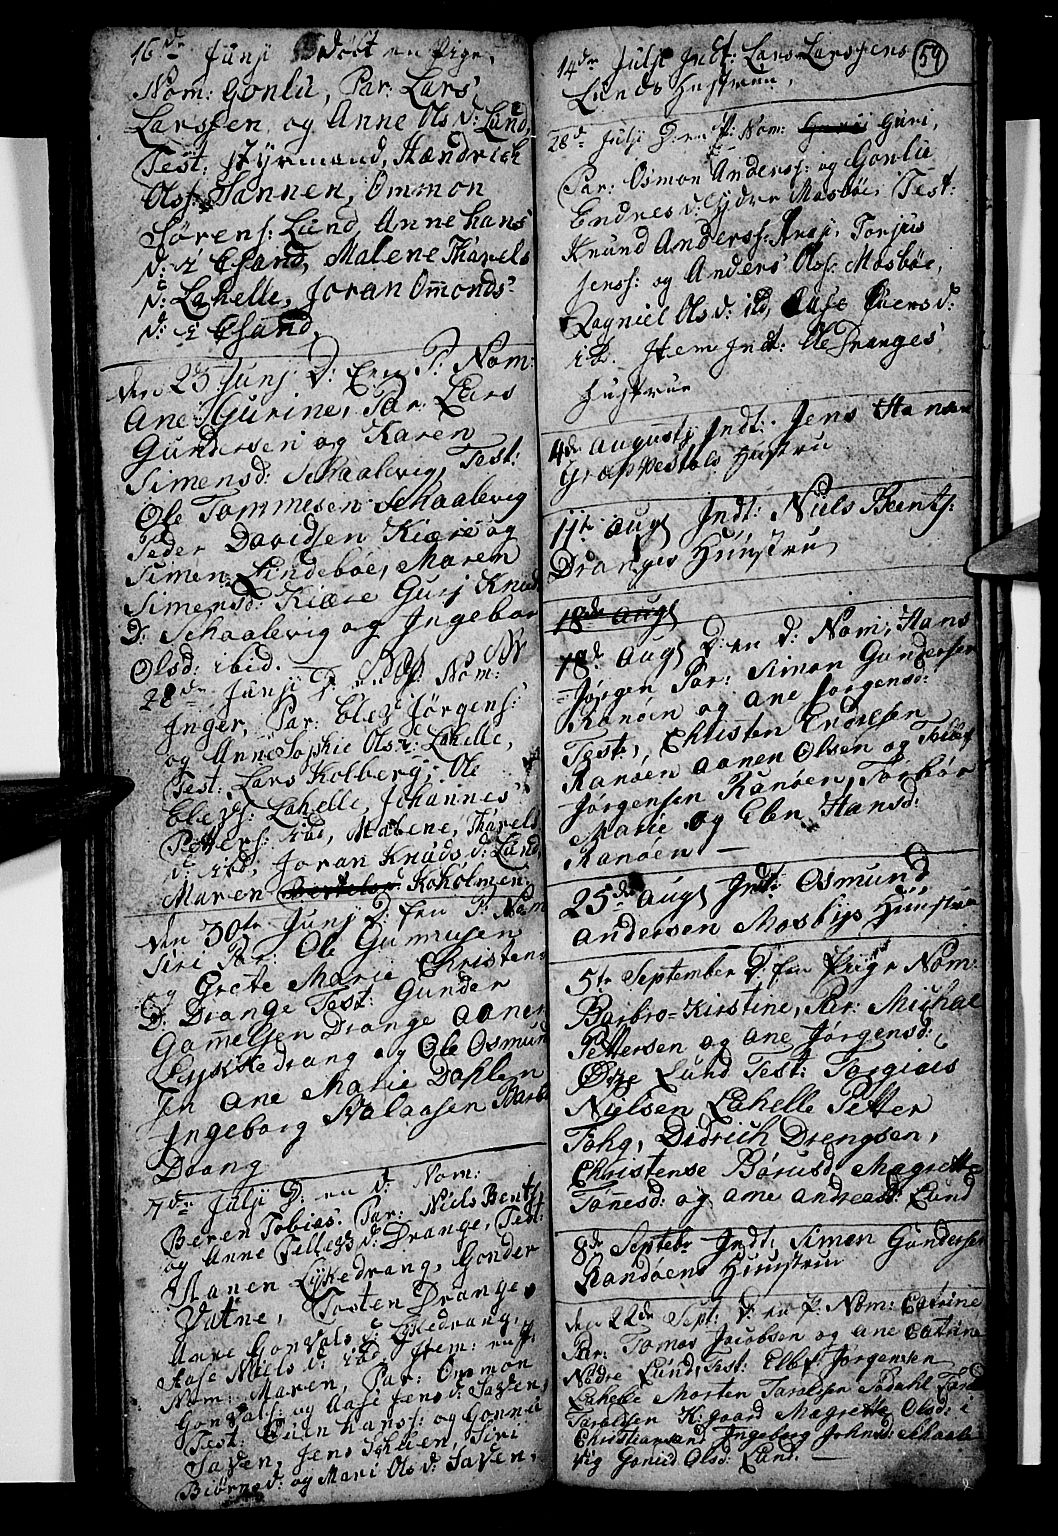 16de Junj Døbt en Pige,
Nom: Gonlu, Par: Lars
Larssen, og Anne Ols d: Lund,
Test: Styrmand, Hændrich
Ols: Sannen, Ommon
Sørens: Lund, Anne Hans
d: i Øsand, Malene Tharels
d: Lahelle, Joran Ommonds
d: i Øsand,
den 25 Junj D: En P: Nom:
Ane Gurine, Par: Lars
Gundersen og Karen
Simensd: Schaalevig, Test:
Ole Tommesen Schaalevig
Peder Davidsen Kiære og
Simen Lindebøe, Maren
Simensd: Kiære Gurj Knud
D: Schaalevig og Ingebor
Olsd: ibid.
28de Junj D en P. Nom:
Inger, Par: Elez Jörgens:
og Anne Sophie Ols d: Lahelle,
Test: Lars Kolberg, Ole
Elezs: Lahelle, Johannes
Petters: ibd, Mabene, Tharels
d: ibd, Joran Knuds d: Lund,
Maren Kokolmen
den 30te Junj D: En P: Nom
Siri Par: Ole Gunnusen
og Grete Marie Christens
D: Drange Test: Gunder
Gammelsen Drange Aanen
Lykkedrang og Ole Osmund
Jen Ane Marie Dahlen
Ingeborg Barbr
Drang
7de Julj D: en d: Nom:
Beren Tobias. Par: Niels Bentz
og Anne Tellezs d: Drange, Test:
Aanen Lykedrang, Gonder
Vatne, Torsten Drange,
Anne Gonvals d: Lykedrang,
Aase Niels d: ibd, Item: en P.
Nom: Maren, Par: Ommon
Gonvals: og Aase Jens d: Saven,
Test: Even Hanss: og Gonne
Saven, Jens Siri
Biørns d: og Mari Ols d: Saven,
59
14de Julj Indt: Lars Larssens
Lunds Hustrue,
28d. Julj D: en P: Nom: Guri,
Par: Osmon Anderss: og Gonlu
Endres d: Ydre Mosbøe, Test:
Knund Anderss: Torjus
Jenss: og Anders Olss: Mosbøe,
Ragniel Ols d: ibd, Aase Evers d:
ibd. Item Indt: Ole Dranges
Hustrue
4de Augustj Indt: Jens Hansen
Grostestøls Hustru
11te Augst Indt: Niels Bentz:
Dranges Huustru
18de Augst
18de Augst D: en d: Nom: Hans
Jørgen Par: Simon Gundersen
Ranøen og Ane Jørgensd:
Test: Christen Endresen
Ranøen Aanen Olsen og Tobias
Jørgensen Ranøen, Torbor
Marie og Elen Hansd:
Ranøen —
25de Augst Indt: Osmund
Andersen Mosbyes Huustru
5te September D: En Piige Nom:
Barbro Kirstine, Par: Michael
Pettersen og Ane Jørgensd:
Øvre Lund Test: Torgius
Nielsen Lahelle Petter
Fohg, Didrich Drengsen,
Christense Børusd Magrette
Tønesd: og Ane Andreasd: Lund
8de Septebr Indt: Simen Gundersen
Randøens Huustrue
den 22de Sept: D: en P: Nom: Catrine
Par: Tomas Jacobsen og Ane Catrine
Nedre Lund, Test: Elbet Jørgensen
Lahelle Morten Taralsen Sødahl Taral
Taraldsen K: gaard Magrette Olsd: i
Christiansand Ingeborg Johnsd: Schaale
vig Gonud Olsd: Lund. —